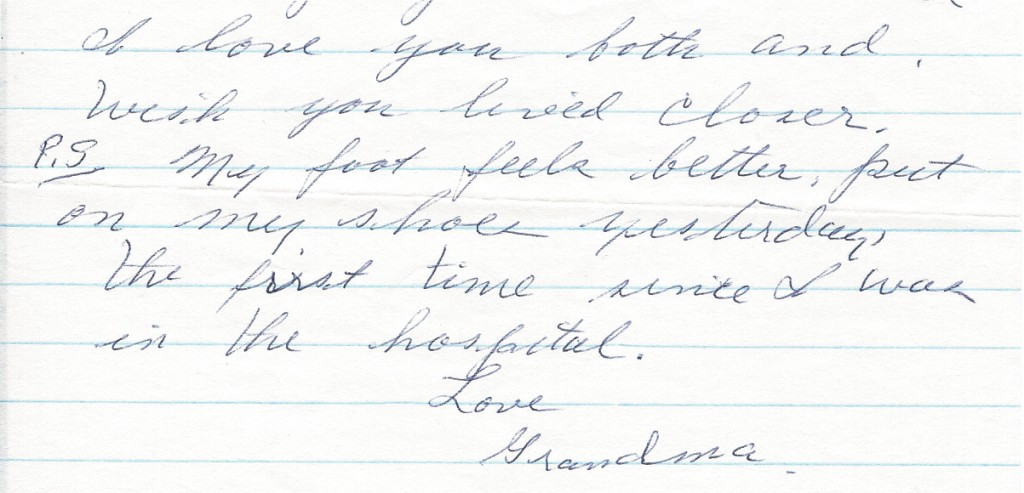 I love you both and
Wish you lived closer.
P.S. My foot feels better, put
on my shoes yesterday,
the first time since I was
in the hospital.
Love
Grandma